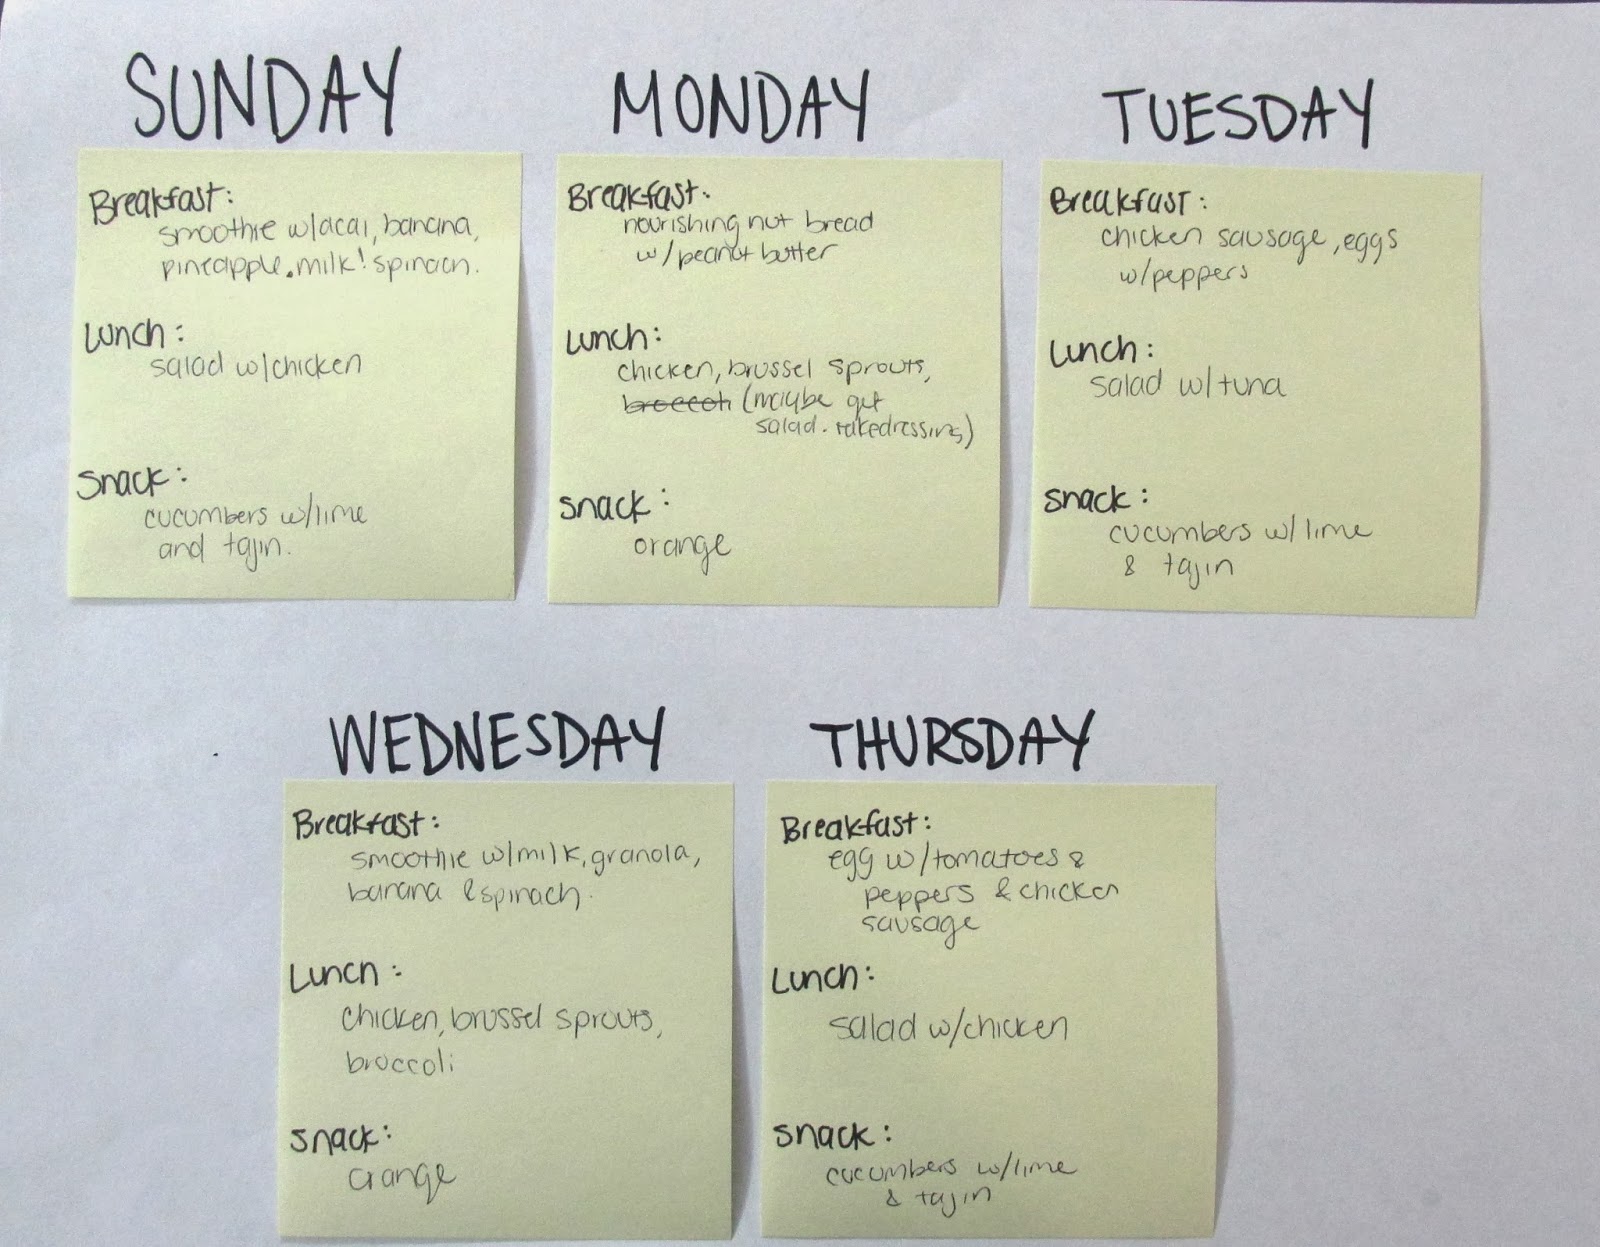 SUNDAY
Breakfast:
smoothie w/acai, banana,
pineapple, milk! spinach.
Lunch:
salad w/chicken
Snack:
cucumbers w/lime
and tajin.
MONDAY
Breakfast:
nourishing nut bread
w/peanut butter
Lunch:
chicken, brussel sprouts,
broccoli (maybe get
salad. take dressing)
snack:
orange
TUESDAY
Breakfast:
chicken sausage, eggs
w/peppers
Lunch:
salad w/tuna
snack:
cucumbers w/lime
& tajin
WEDNESDAY
Breakfast:
smoothie w/milk, granola,
banana & spinach.
Lunch:
chicken, brussel sprouts,
broccoli
snack:
orange
THURSDAY
Breakfast:
egg w/tomatoes &
peppers & chicken
sausage
Lunch:
salad w/chicken
snack:
cucumbers w/lime
& tajin